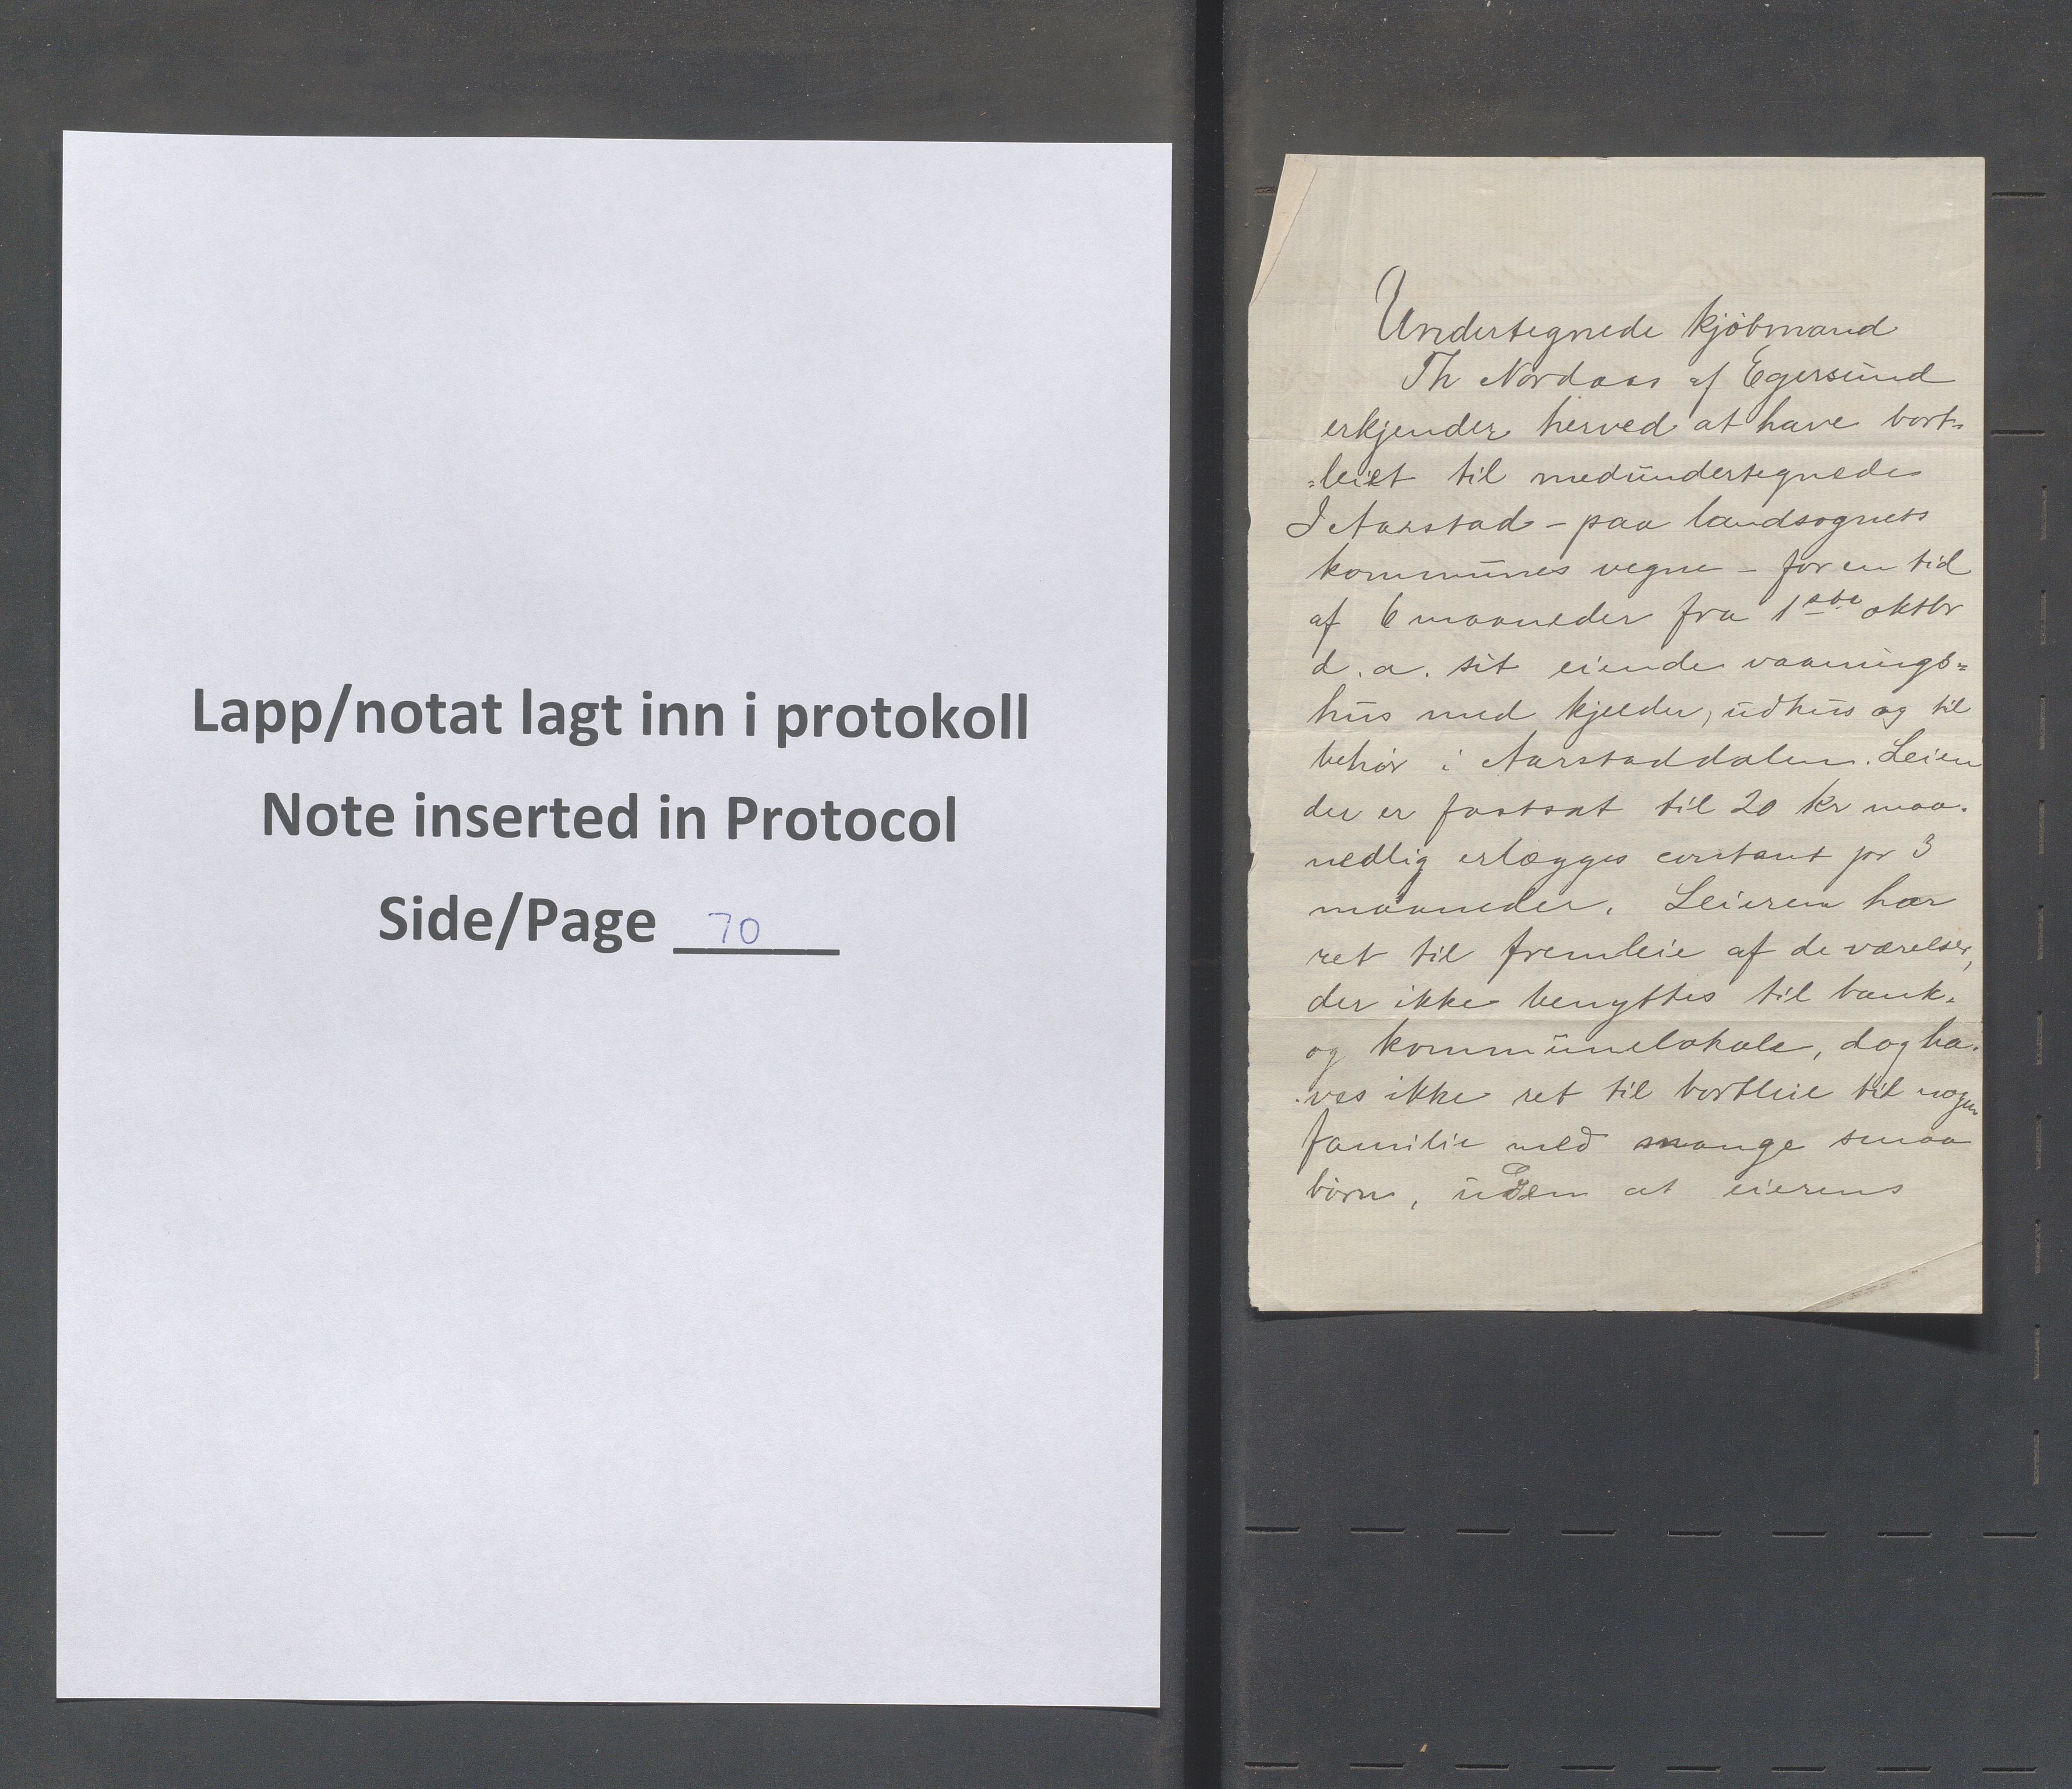 Lapp/notat lagt inn i protokoll
Note inserted in Protocol
Side/Page 70
Undertegnede kjøbmand
Th Nordaas af Egersund
erkjender herved at have bort-
=leiet til medundertegnede
I Aarstad - paa landsognets
kommunes vegne - for en tid
af 6 maaneder fra 1ste oktbr
d. a. sit eiende vaanings=
hus med kjelder, udhus og til
behør i Aarstaddalen. Leien
der er fastsat til 20 kr maa-
nedlig erlægges contant pr 3
maaneder. Leieren har
ret til fremleie af de værelser,
der ikke benyttes til bank-
og kommunelokale, dog ha-
-ves ikke ret til bortleie til nogen
familie med mange smaa
børn, uden at eierens